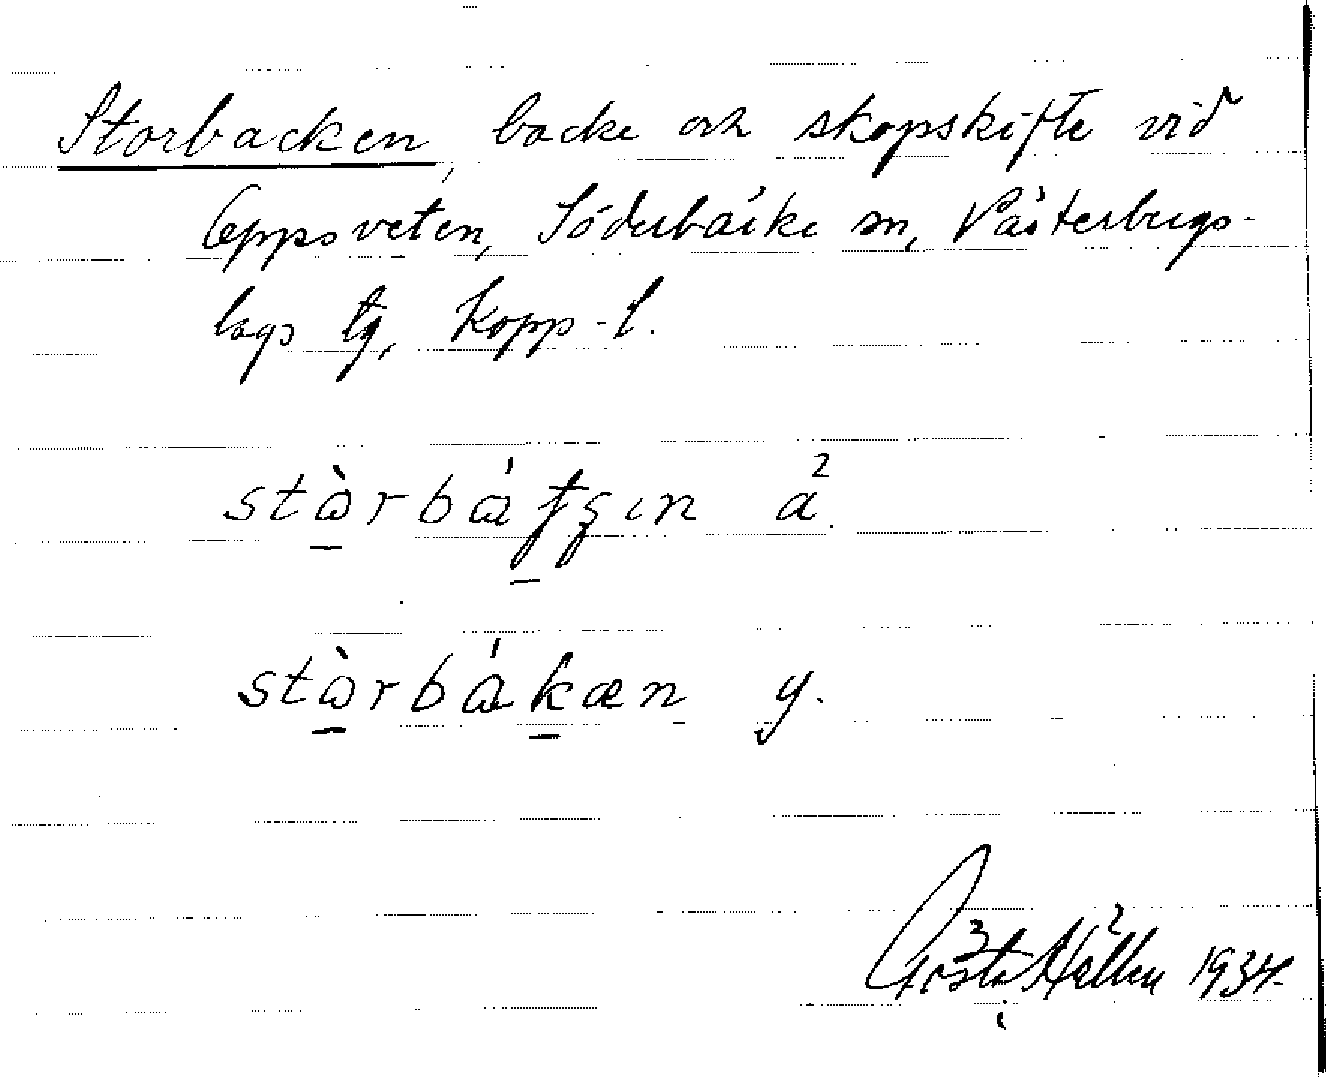 Storbacken, backe och skogsskifte vid
Oppsveten, Söderbärke sn, Västerbergs-
lags tg, Kopp-l.
a².
stòrbákæn y.
Gösta Hallén 1934.